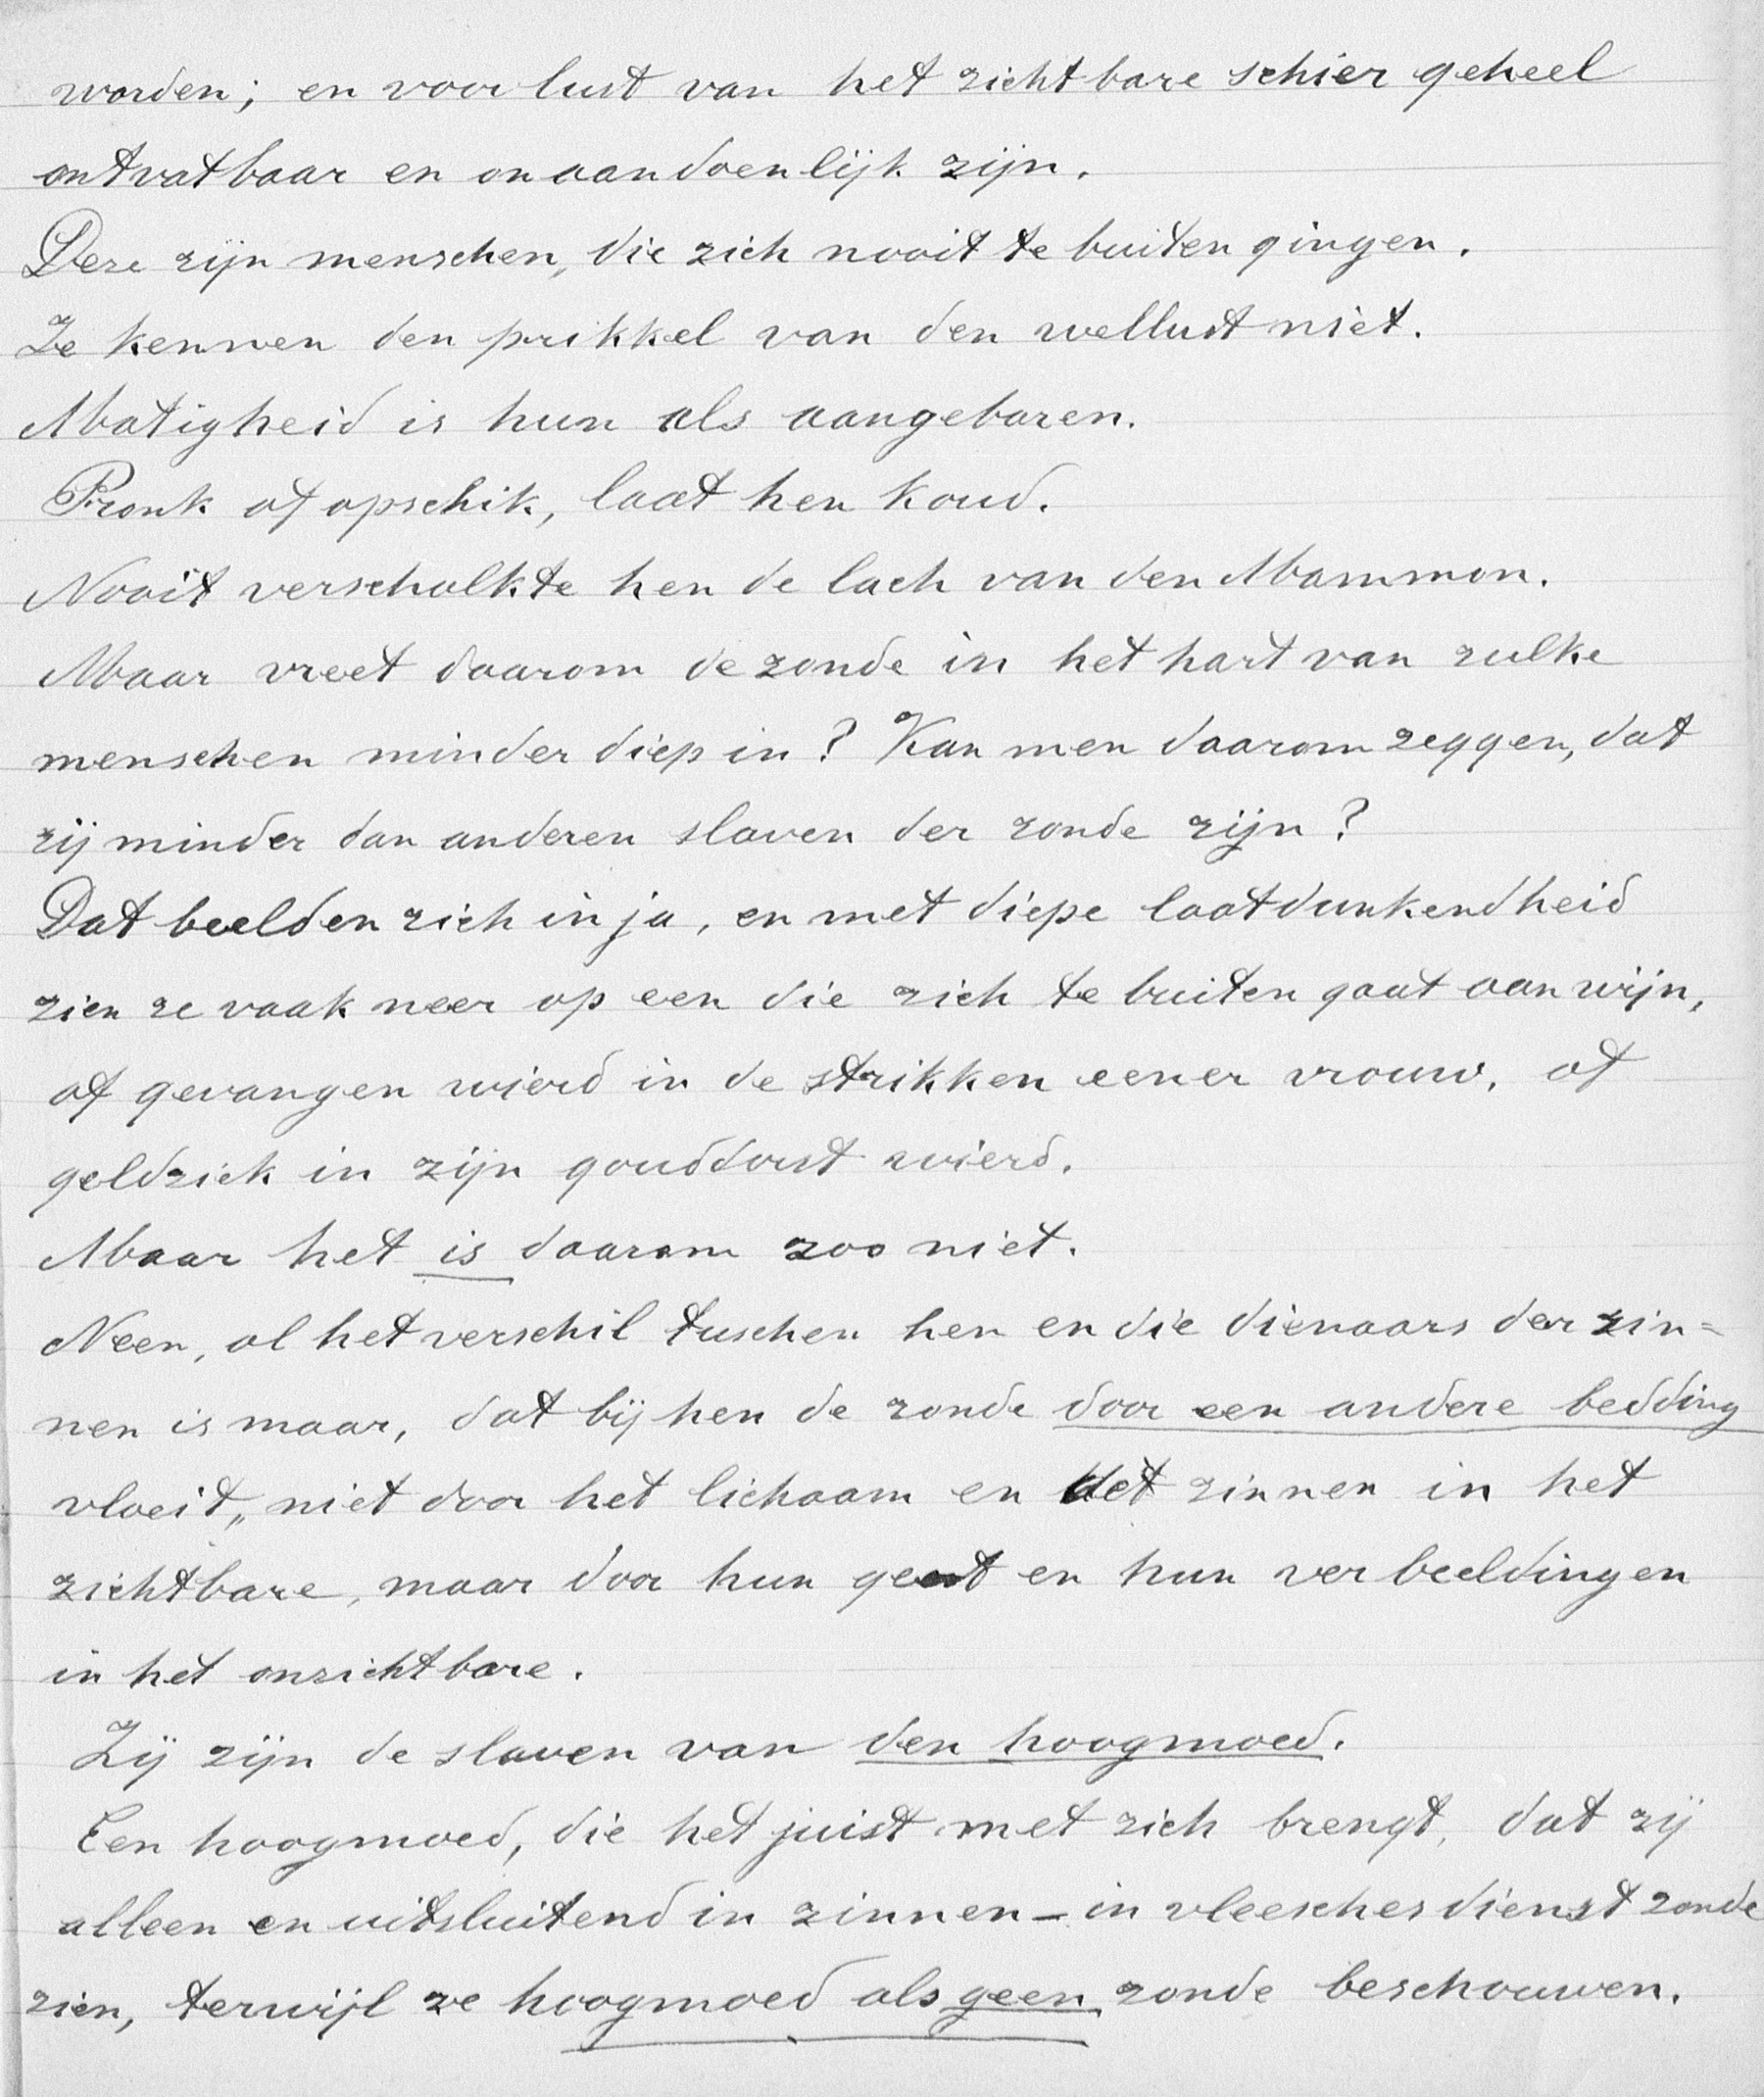 worden; en voor lust van het zichtbare schier geheel
ontvatbaar en onaandoenlijk zijn.
Deze zijn menschen, die zich nooit te buiten gingen.
Ze kennen den prikkel van den wellust niet.
Matigheid is hun als aangeboren.
Pronk of opschik, laat hen koud.
Nooit verschalkte hen de lach van den Mammon.
Maar vreet daarom de zonde in het hart van zulke
menschen minder diep in? Kan men daarom zeggen, dat
zij minder dan anderen slaven der zonde zijn?
Dat beelden zich in ja, en met diepe laatdunkendheid
zien ze vaak neer op een die zich te buiten gaat aan wijn,
of gevangen wierd in de strikken eener vrouw, of
geldziek in zijn gouddorst wierd.
Maar het is daarom zoo niet.
Neen, al het verschil tuschen hen en die dienaars der zin=
nen is maar, dat bij hen de zonde door een andere bedding
vloeit,, niet door het lichaam en det zinnen in het
zichtbare, maar door hun geest en hun verbeeldingen
in het onzichtbare.
Zij zijn de slaven van den hoogmoed.
Een hoogmoed, die het juist met zich brengt, dat zij
alleen en uitsluitend in zinnen - in vleeschesdienst zonde
zien, terwijl ze hoogmoed als geen zonde beschouwen.